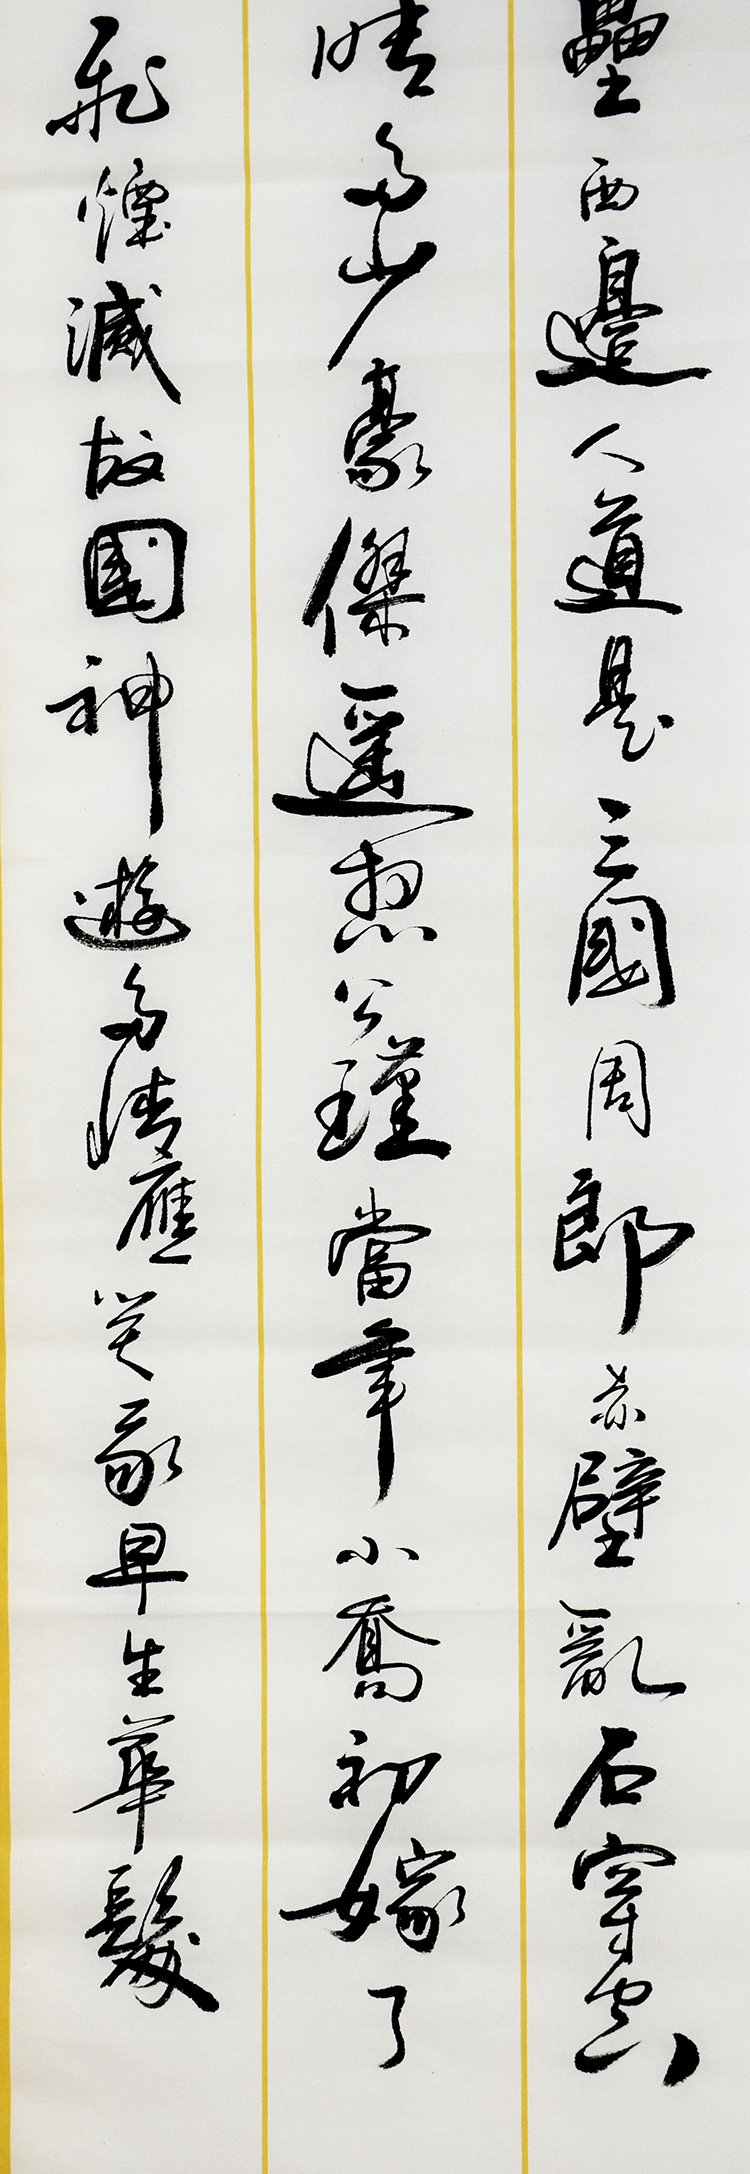 壘西邊人道是三國周郎赤壁亂石穿空
時多少豪傑遙想公瑾當年小喬初嫁了
飛煙滅故國神遊多情應笑我早生華髮